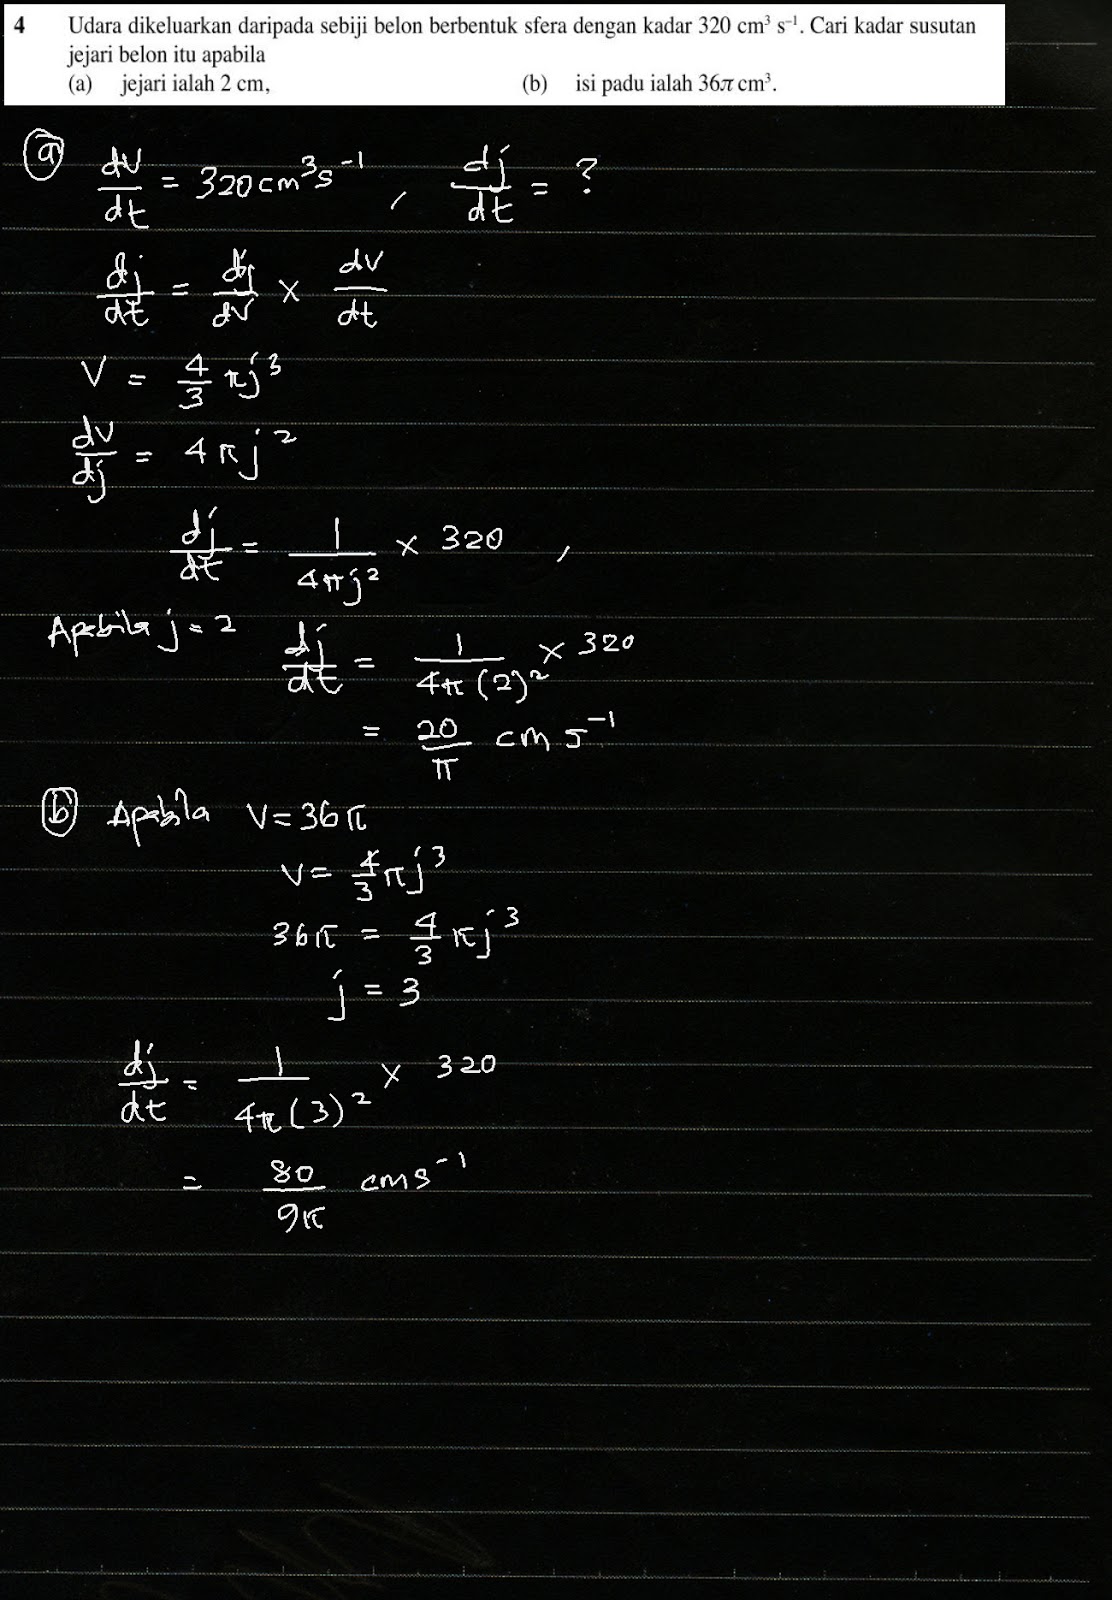 4 Udara dikeluarkan daripada sebiji belon berbentuk sfera dengan kadar 320 cm³ s⁻¹. Cari kadar susutan
jejari belon itu apabila
(a) jejari ialah 2 cm, (b) isi padu ialah 36π cm³.
(a) dV/dt = 320 cm³s⁻¹ , dj/dt = ?
dj/dt = dj/dV × dV/dt
V = 4/3 πj³
dV/dj = 4πj²
dj/dt = 1/4πj² × 320 ,
Apabila j = 2 dj/dt = 1/4π(2)² × 320
= 20/π cm s⁻¹
(b) Apabila V = 36π
V = 4/3 πj³
36π = 4/3 πj³
j = 3
dj/dt = 1/4π(3)² × 320
= 80/9π cms⁻¹